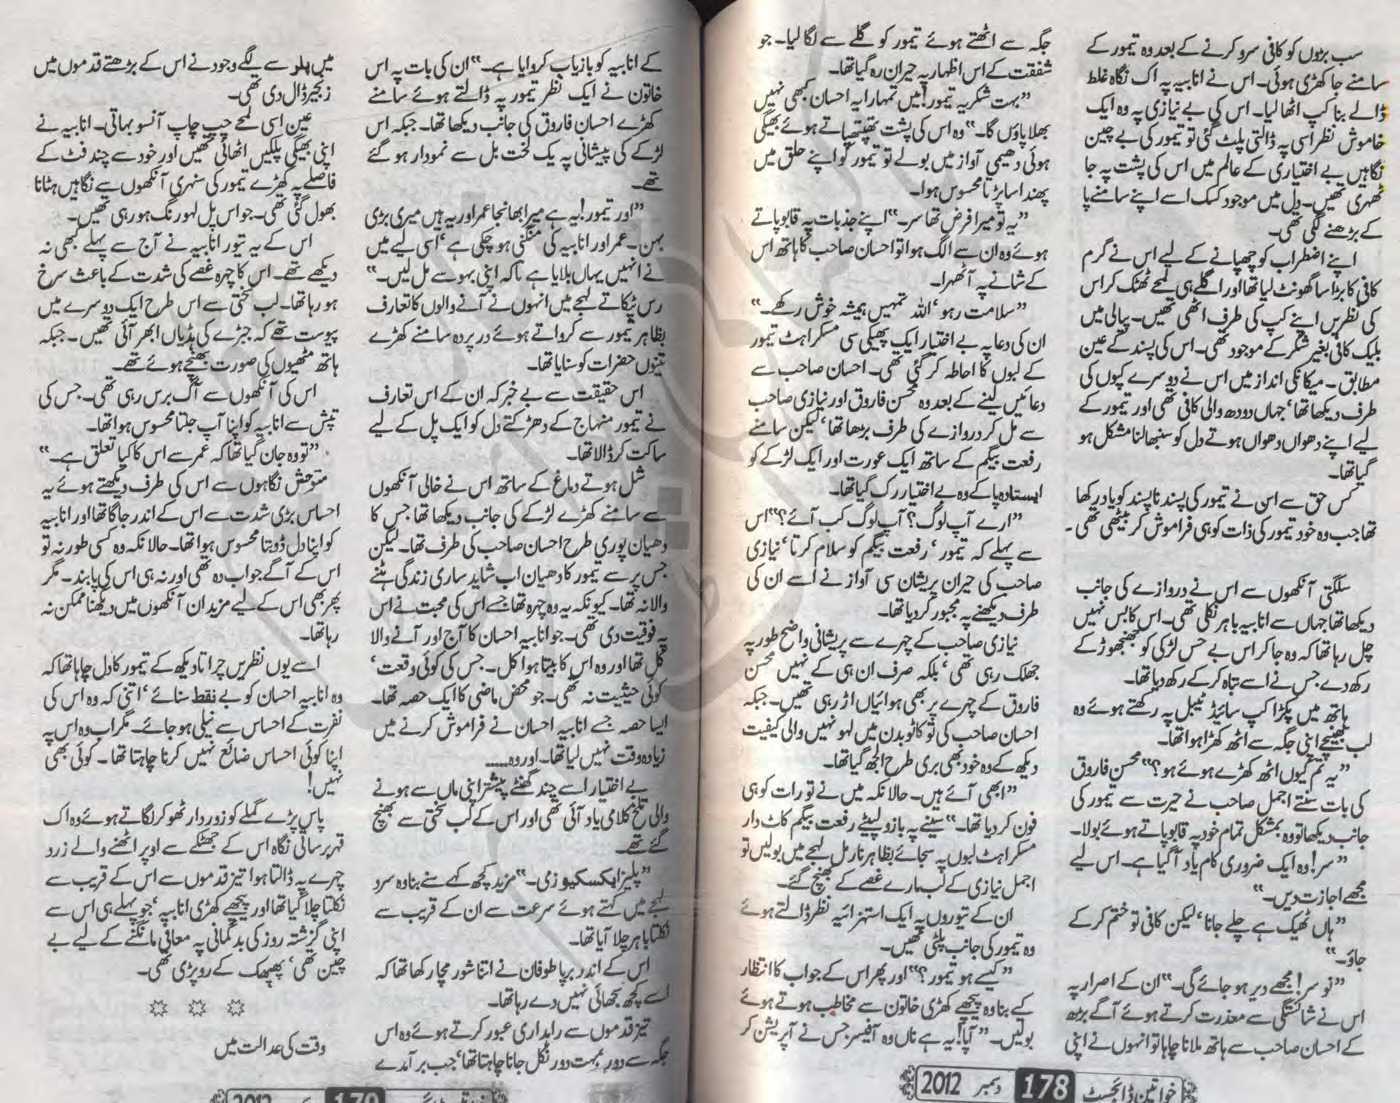 سب بڑوں کو کافی سرو کرنے کے بعد وہ تیمور کے
سامنے جا کھڑی ہوئی۔ اس نے انابیہ پہ اک نگاہ غلط
ڈالے بنا کپ اٹھا لیا۔ اس کی بے نیازی پہ وہ ایک
خاموش نظر اسی پہ ڈالتی پلٹ گئی تو تیمور کی بے چین
نگاہیں بے اختیاری کے عالم میں اس کی پشت پہ جا
ٹھہری تھیں۔ دل میں موجود کسک اسے اپنے سامنے پا
کے بڑھنے لگی تھی۔
اپنے اضطراب کو چھپانے کے لیے اس نے گرم
کافی کا بڑا سا گھونٹ لیا تھا اور اگلے ہی لمحے ٹھٹک کر اس
کی نظریں اپنے کپ کی طرف اٹھی تھیں۔ پیالی میں
بلیک کافی بغیر شکر کے موجود تھی۔ اس کی پسند کے عین
مطابق۔ میکانکی انداز میں اس نے دوسرے کپوں کی
طرف دیکھا تھا' جہاں دودھ والی کافی تھی اور تیمور کے
لیے اپنے دھواں دھواں ہوتے دل کو سنبھالنا مشکل ہو
گیا تھا۔
کس حق سے اس نے تیمور کی پسند ناپسند کو یاد رکھا
تھا جب وہ خود تیمور کی ذات کو ہی فراموش کر بیٹھی تھی۔
سلگتی آنکھوں سے اس نے دروازے کی جانب
دیکھا تھا جہاں سے انابیہ باہر نکلی تھی۔ اس کا بس نہیں
چل رہا تھا کہ وہ جا کر اس بے حس لڑکی کو جھنجھوڑ کے
رکھ دے جس نے اسے تباہ کر کے رکھ دیا تھا۔
ہاتھ میں پکڑا کپ سائیڈ ٹیبل پہ رکھتے ہوئے وہ
لب بھینچے اپنی جگہ سے اٹھ کھڑا ہوا تھا۔
"یہ تم کیوں اٹھ کھڑے ہوئے ہو؟" محسن فاروق
کی بات سنتے اجمل صاحب نے حیرت سے تیمور کی
جانب دیکھا تو وہ بمشکل تمام خود پہ قابو پاتے ہوئے بولا۔
"سر! وہ ایک ضروری کام یاد آ گیا ہے۔ اس لیے
مجھے اجازت دیں۔"
"ہاں ٹھیک ہے چلے جانا' لیکن کافی تو ختم کر کے
جاؤ۔"
"نو سر! مجھے دیر ہو جائے گی۔" ان کے اصرار پہ
اس نے شائستگی سے معذرت کرتے ہوئے آگے بڑھ
کے احسان صاحب سے ہاتھ ملانا چاہا تو انہوں نے اپنی
جگہ سے اٹھتے ہوئے تیمور کو گلے سے لگا لیا۔ جو
شفقت کے اس اظہار پہ حیران رہ گیا تھا۔
"بہت شکریہ تیمور! میں تمہارا یہ احسان کبھی نہیں
بھلا پاؤں گا۔" وہ اس کی پشت تھپتھپاتے ہوئے بھیگی
ہوئی دھیمی آواز میں بولے تو تیمور کو اپنے حلق میں
پھندا سا پڑتا محسوس ہوا۔
"یہ تو میرا فرض تھا سر۔" اپنے جذبات پہ قابو پاتے
ہوئے وہ ان سے الگ ہوا تو احسان صاحب کا ہاتھ اس
کے شانے پہ آ ٹھہرا۔
"سلامت رہو' اللہ تمہیں ہمیشہ خوش رکھے۔"
ان کی دعا پہ بے اختیار ایک پھیکی سی مسکراہٹ تیمور
کے لبوں کا احاطہ کر گئی تھی۔ احسان صاحب سے
دعائیں لینے کے بعد وہ محسن فاروق اور نیازی صاحب
سے مل کر دروازے کی طرف بڑھا تھا' لیکن سامنے
رفعت بیگم کے ساتھ ایک عورت اور ایک لڑکے کو
ایستادہ پا کے وہ بے اختیار رک گیا تھا۔
"ارے آپ لوگ؟ آپ لوگ کب آئے؟" اس
سے پہلے کہ تیمور' رفعت بیگم کو سلام کرتا' نیازی
صاحب کی حیران پریشان سی آواز نے اسے ان کی
طرف دیکھنے پہ مجبور کر دیا تھا۔
نیازی صاحب کے چہرے سے پریشانی واضح طور پہ
جھلک رہی تھی' بلکہ صرف ان ہی کے نہیں محسن
فاروق کے چہرے پر بھی ہوائیاں اڑ رہی تھیں۔ جبکہ
احسان صاحب کی تو کاٹو بدن میں لہو نہیں والی کیفیت
دیکھ کے وہ خود بھی بری طرح الجھ گیا تھا۔
"ابھی آئے ہیں۔ حالانکہ میں نے تو رات کو ہی
فون کر دیا تھا۔" سینے پہ بازو لپیٹے رفعت بیگم کاٹ دار
مسکراہٹ لبوں پہ سجائے بظاہر نارمل لہجے میں بولیں تو
اجمل نیازی کے لب مارے غصے کے بھنچ گئے۔
ان کے تیوروں پہ ایک استہزائیہ نظر ڈالتے ہوئے
وہ تیمور کی جانب پلٹی تھیں۔
"کیسے ہو تیمور؟" اور پھر اس کے جواب کا انتظار
کیے بنا وہ پیچھے کھڑی خاتون سے مخاطب ہوتے ہوئے
بولیں۔ "آپا! یہ ہے ناں وہ آفیسر جس نے آپریشن کر
خواتین ڈائجسٹ 178 دسمبر 2012
کے انابیہ کو بازیاب کروایا ہے۔" ان کی بات پہ اس
خاتون نے ایک نظر تیمور پہ ڈالتے ہوئے سامنے
کھڑے احسان فاروق کی جانب دیکھا تھا۔ جبکہ اس
لڑکے کی پیشانی پہ یک لخت بل سے نمودار ہو گئے
تھے۔
"اور تیمور! یہ ہے میرا بھانجا عمر اور یہ ہیں میری بڑی
بہن۔ عمر اور انابیہ کی منگنی ہو چکی ہے' اسی لیے میں
نے انہیں یہاں بلایا ہے تاکہ اپنی بہو سے مل لیں۔"
رس ٹپکاتے لہجے میں انہوں نے آنے والوں کا تعارف
بظاہر تیمور سے کرواتے ہوئے در پردہ سامنے کھڑے
تینوں حضرات کو سنایا تھا۔
اس حقیقت سے بے خبر کہ ان کے اس تعارف
نے تیمور منہاج کے دھڑکتے دل کو ایک پل کے لیے
ساکت کر ڈالا تھا۔
شل ہوتے دماغ کے ساتھ اس نے خالی آنکھوں
سے سامنے کھڑے لڑکے کی جانب دیکھا تھا جس کا
دھیان پوری طرح احسان صاحب کی طرف تھا۔ لیکن
جس پر سے تیمور کا دھیان اب شاید ساری زندگی ہٹنے
والا نہ تھا۔ کیونکہ یہ وہ چہرہ تھا جسے اس کی محبت نے اس
پہ فوقیت دی تھی۔ جو انابیہ احسان کا آج اور آنے والا
کل تھا اور وہ اس کا بیتا ہوا کل۔ جس کی کوئی وقعت'
کوئی حیثیت نہ تھی۔ جو محض ماضی کا ایک حصہ تھا۔
ایسا حصہ جسے انابیہ احسان نے فراموش کرنے میں
زیادہ وقت نہیں لیا تھا۔ اور وہ.....
بے اختیار اسے چند گھنٹے پیشتر اپنی ماں سے ہونے
والی تلخ کلامی یاد آئی تھی اور اس کے لب سختی سے بھنچ
گئے تھے۔
"پلیز ایکسکیوز می۔" مزید کچھ کہے سنے بنا وہ سرد
لہجے میں کہتے ہوئے سرعت سے ان کے قریب سے
نکلتا باہر چلا آیا تھا۔
اس کے اندر برپا طوفان نے اتنا شور مچا رکھا تھا کہ
اسے کچھ سجھائی نہیں دے رہا تھا۔
تیز قدموں سے راہداری عبور کرتے ہوئے وہ اس
جگہ سے دور بہت دور نکل جانا چاہتا تھا' جب برآمدے
میں پلر سے لگے وجود نے اس کے بڑھتے قدموں میں
زنجیر ڈال دی تھی۔
عین اسی لمحے چپ چاپ آنسو بہاتی۔ انابیہ نے
اپنی بھیگی پلکیں اٹھائی تھیں اور خود سے چند فٹ کے
فاصلے پہ کھڑے تیمور کی سنہری آنکھوں سے نگاہیں ہٹانا
بھول گئی تھی۔ جو اس پل لہو رنگ ہو رہی تھیں۔
اس کے یہ تیور انابیہ نے آج سے پہلے کبھی نہ
دیکھے تھے۔ اس کا چہرہ غصے کی شدت کے باعث سرخ
ہو رہا تھا۔ لب سختی سے اس طرح ایک دوسرے میں
پیوست تھے کہ جبڑے کی ہڈیاں ابھر آئی تھیں۔ جبکہ
ہاتھ مٹھیوں کی صورت بھنچے ہوئے تھے۔
اس کی آنکھوں سے آگ برس رہی تھی۔ جس کی
تپش سے انابیہ کو اپنا آپ جلتا محسوس ہوا تھا۔
"تو وہ جان گیا تھا کہ عمر سے اس کا کیا تعلق ہے۔"
متوحش نگاہوں سے اس کی طرف دیکھتے ہوئے یہ
احساس بڑی شدت سے اس کے اندر جاگا تھا اور انابیہ
کو اپنا دل ڈوبتا محسوس ہوا تھا۔ حالانکہ وہ کسی طور نہ تو
اس کے آگے جواب دہ تھی اور نہ ہی اس کی پابند۔ مگر
پھر بھی اس کے لیے مزید ان آنکھوں میں دیکھنا ممکن نہ
رہا تھا۔
اسے یوں نظریں چراتا دیکھ کے تیمور کا دل چاہا تھا کہ
وہ انابیہ احسان کو بے نقط سنائے' اتنی کہ وہ اس کی
نفرت کے احساس سے نیلی ہو جائے۔ مگر اب وہ اس پہ
اپنا کوئی احساس ضائع نہیں کرنا چاہتا تھا۔ کوئی بھی
نہیں!
پاس پڑے گملے کو زوردار ٹھوکر لگاتے ہوئے وہ اک
قہر برساتی نگاہ اس کے جھٹکے سے اوپر اٹھنے والے زرد
چہرے پہ ڈالتا ہوا تیز قدموں سے اس کے قریب سے
نکلتا چلا گیا تھا اور پیچھے کھڑی انابیہ' جو پہلے ہی اس سے
اپنی گزشتہ روز کی بدگمانی پہ معافی مانگنے کے لیے بے
چین تھی' پھپھک کے رو پڑی تھی۔
وقت کی عدالت میں
179 2012